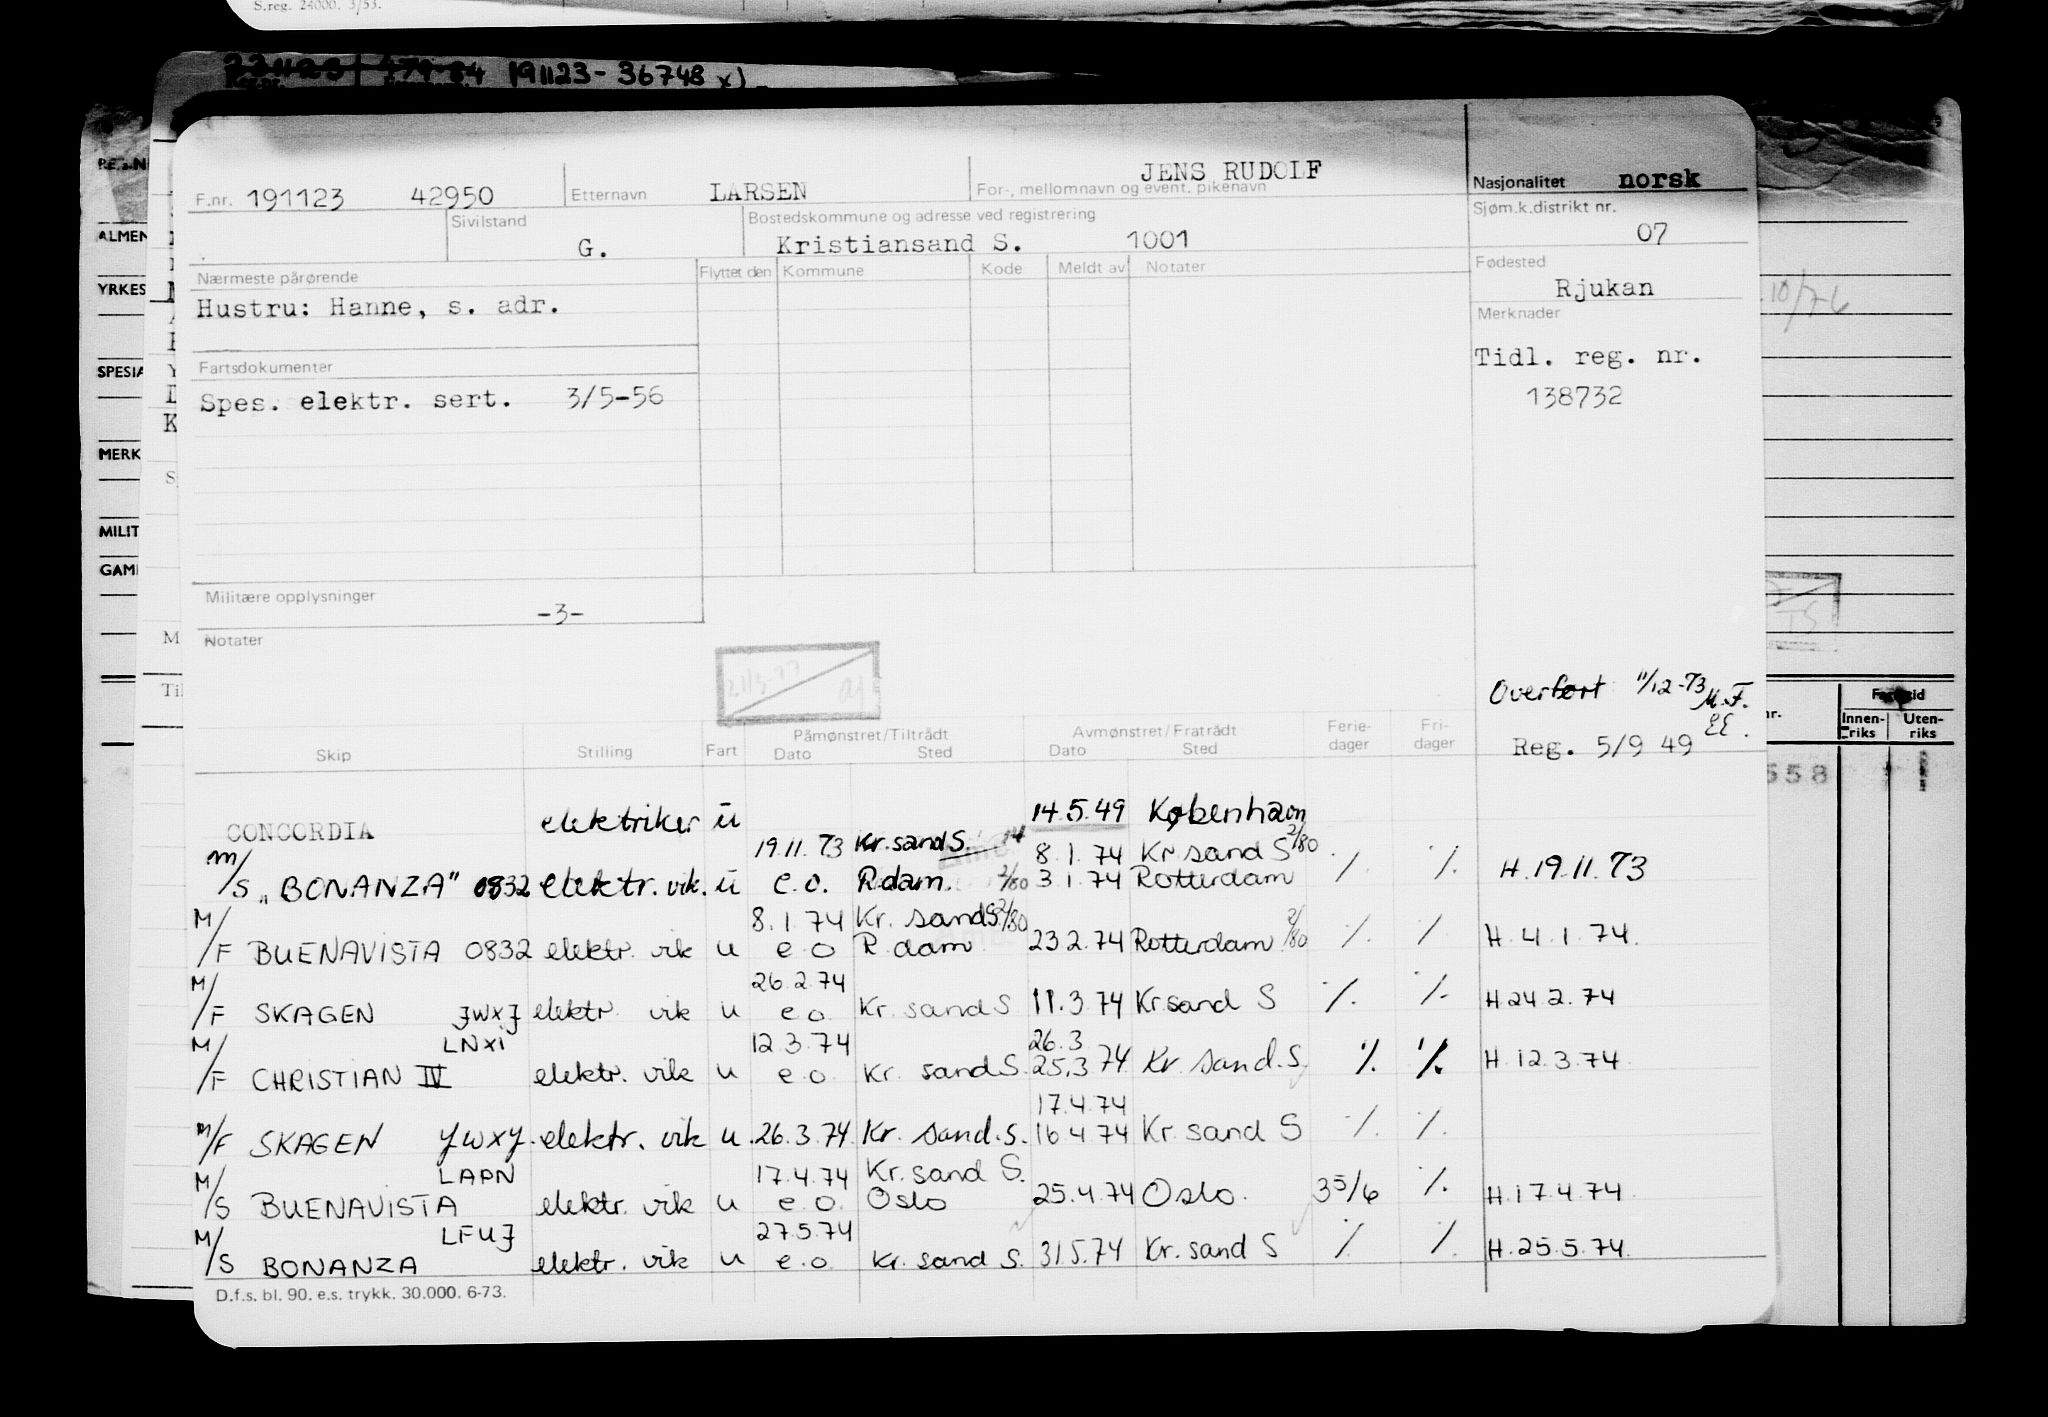 S.reg. 24000. 3/53.
191123-36748 x)
F.nr. 191123 42950 Etternavn LARSEN JENS RUDOLF For-, mellomnavn og event. pikenavn Nasjonalitet norsk
Sivilstand G. Bostedskommune og adresse ved registrering Kristiansand S. 1001 Sjøm.k.distrikt nr. 07
Nærmeste pårørende Flyttet den Kommune Kode Meldt av Notater Fødested Rjukan
Hustru: Hanne, s. adr. Merknader
Fartsdokumenter Tidl. reg. nr.
Spes. elektr. sert. 3/5-56 138732
Militære opplysninger -3-
Notater
Overført 11/12-73 M.F.
EE.
Reg. 5/9 49
Skip Stilling Fart Påmønstret/Tiltrådt Dato Sted Avmønstret/Fratrådt Dato Sted Ferie-dager Fri-dager
CONCORDIA elektriker ū 14.5.49 København
19.11.73 Kr.sand S. 8.1.74 Kr sand S 2/80
M/S "BONANZA" 0832 elektr. vik. ū e.o. R.dam. 2/80 3.1.74 Rotterdam % % H.19.11.73
8.1.74 Kr. sand S 2/80
M/F BUENAVISTA 0832 elektr. vik u e.o R.dam 23.2.74 Rotterdam 2/80 % % H.4.1.74.
26.2.74
M/F SKAGEN JWXJ elektr. vik u e.o. Kr. sand S 11.3.74 Kr.sand S % % H.24.2.74
LNXI 12.3.74 26.3
M/F CHRISTIAN IV elektr. vik u e.o. Kr. sand S. 25.3.74 Kr. sand. S. % % H.12.3.74.
17.4.74
M/F SKAGEN JWXJ. elektr. vik u. 26.3.74. Kr. sand. S. 16.4.74 Kr. sand S % %
LAPN 17.4.74 Kr. sand S.
M/S BUENAVISTA elektr. vik u e.o. Oslo 25.4.74 Oslo. 35/6 % H.17.4.74.
LFUJ 27.5.74
M/S BONANZA elektr. vik u e.o. Kr. sand S. 31.5.74 Kr. sand S % % H.25.5.74.
D.f.s. bl. 90. e.s. trykk. 30.000. 6-73.
ALMEN
YRKES
SPESIA
MERK
MILIT
GAM
10/7-6
Innen-riks Uten-riks
558